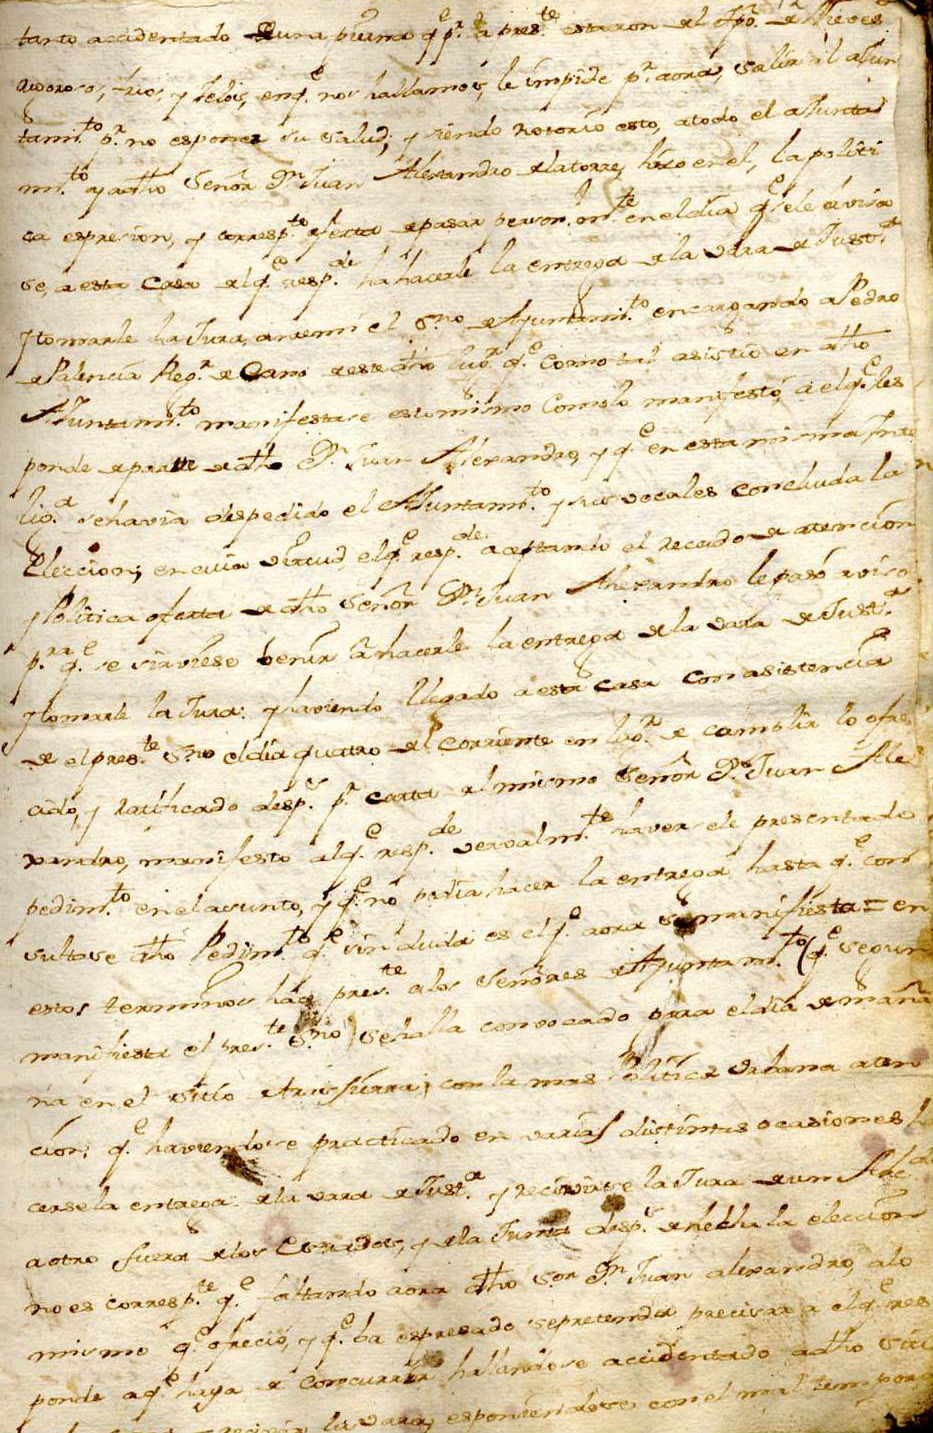 tanto accidentado de una pierna q.e p.r la pres.te estazon del tpō. de Nieves
rigorosos, frios, y Yelos, en q.e nos hallamos, le impide p.r aora, salir al aiun
tam.to p.r no esponer su salud; y siendo notorio esto, a todo el aiunta
m.to y a dho Señor D.n Juan Alexandro de la torre, hizo en el, la politi
ca espresion, y corresp.te oferta de pasar person.l m.te en el dia q.e se le avisa
se, a esta Casa del q.e resp.de ha hacerle la entrega de la vara de Just.a
y tomarle la Jura, ante mi el S.no de Ayuntami.to encargando a Pedro
de Palencia Reg.r de Cano de este dho lug.r q.e como tal asistio en dho
Aiuntam.to manifestase esto mismo como lo manifestó, a el q.e res
ponde de parte de dho D.n Juan Alexandro, y q.e en esta misma Inte
lig.a se havia despedido el Aiuntam.to y sus vocales concluida la
Eleccion; en cuia virtud el q.e resp.de aceptando el recado de atencion
y Politica oferta de dho Señor D.n Juan Alexandro le pasó aviso
p.ra q.e se sirviese venir â hacerle la entrega de la vara de Just.a
y tomarle la Jura: y haviendo llegado a esta casa con asistencia
de el pres.te S.no el dia quatro del corriente en lug.r de cumplir lo ofre
cido, y ratificado desp.s p.r carta del mismo Señor D.n Juan Ale
xandro, manifesto al q.e resp.de vervalm.te haversele presentado
pedim.to en el asunto, y q.e no podia hacer la entrega hasta q.e con
sultase dho Pedim.to q.e sin duda es el q.e aora se manifiesta = en
estos terminos haze pres.te a los Señores de Ayuntam.to (q.e segun
manifiesta el pres.te S.no) se halla convocado para el dia de maña
na en el sitio de trassierra, con la mas Politica Urbana aten
cion; q.e haviendose practicado en varias distintas ocasiones ha
cerse la entrega de la vara de Just.a y recivirse la Jura de un Alc.de
a otro fuera de los Estrados, y de la Junta desp.s de hecha la eleccion
no es corresp.te q.e faltando aora dho S.or D.n Juan alexandro, a lo
mismo q.e ofreció, y q.e ba espresado se pretenda precisar a el q.e res
ponde a q.e haya de concurrir hallandose accidentado a dho siti
la vara, esponiendose con el mal tempora